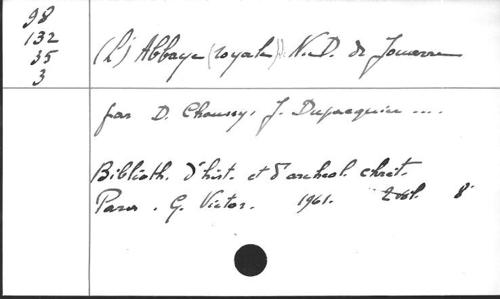 98
132
35
3
(L') Abbaye (royale) N.D. de Jouarre
par Y. Chaussy, J. Dupâquier ....
Biblioth. d'hist. et d'archeol. chrét.
Paris. G. Victor. 1961. 2 vol. 8°